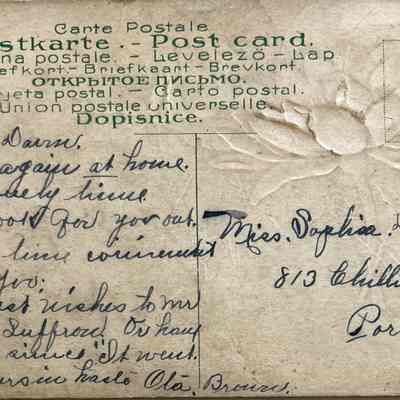 Carte Postale
stkarte.-Post card.
na postale.-Levelező-Lap
efkort-Briefkaart-Brevkort.
ОТКРЫТОЕ ПИСЬМО.
jeta postal.-Carto postal.
Union postale universelle.
Dopisnice.
again at home.
time
for you out.
time convenient
you.
est wishes to Mr
since "It went.
in haste Brown.
Miss. Sophia.
813 Chilli
Por